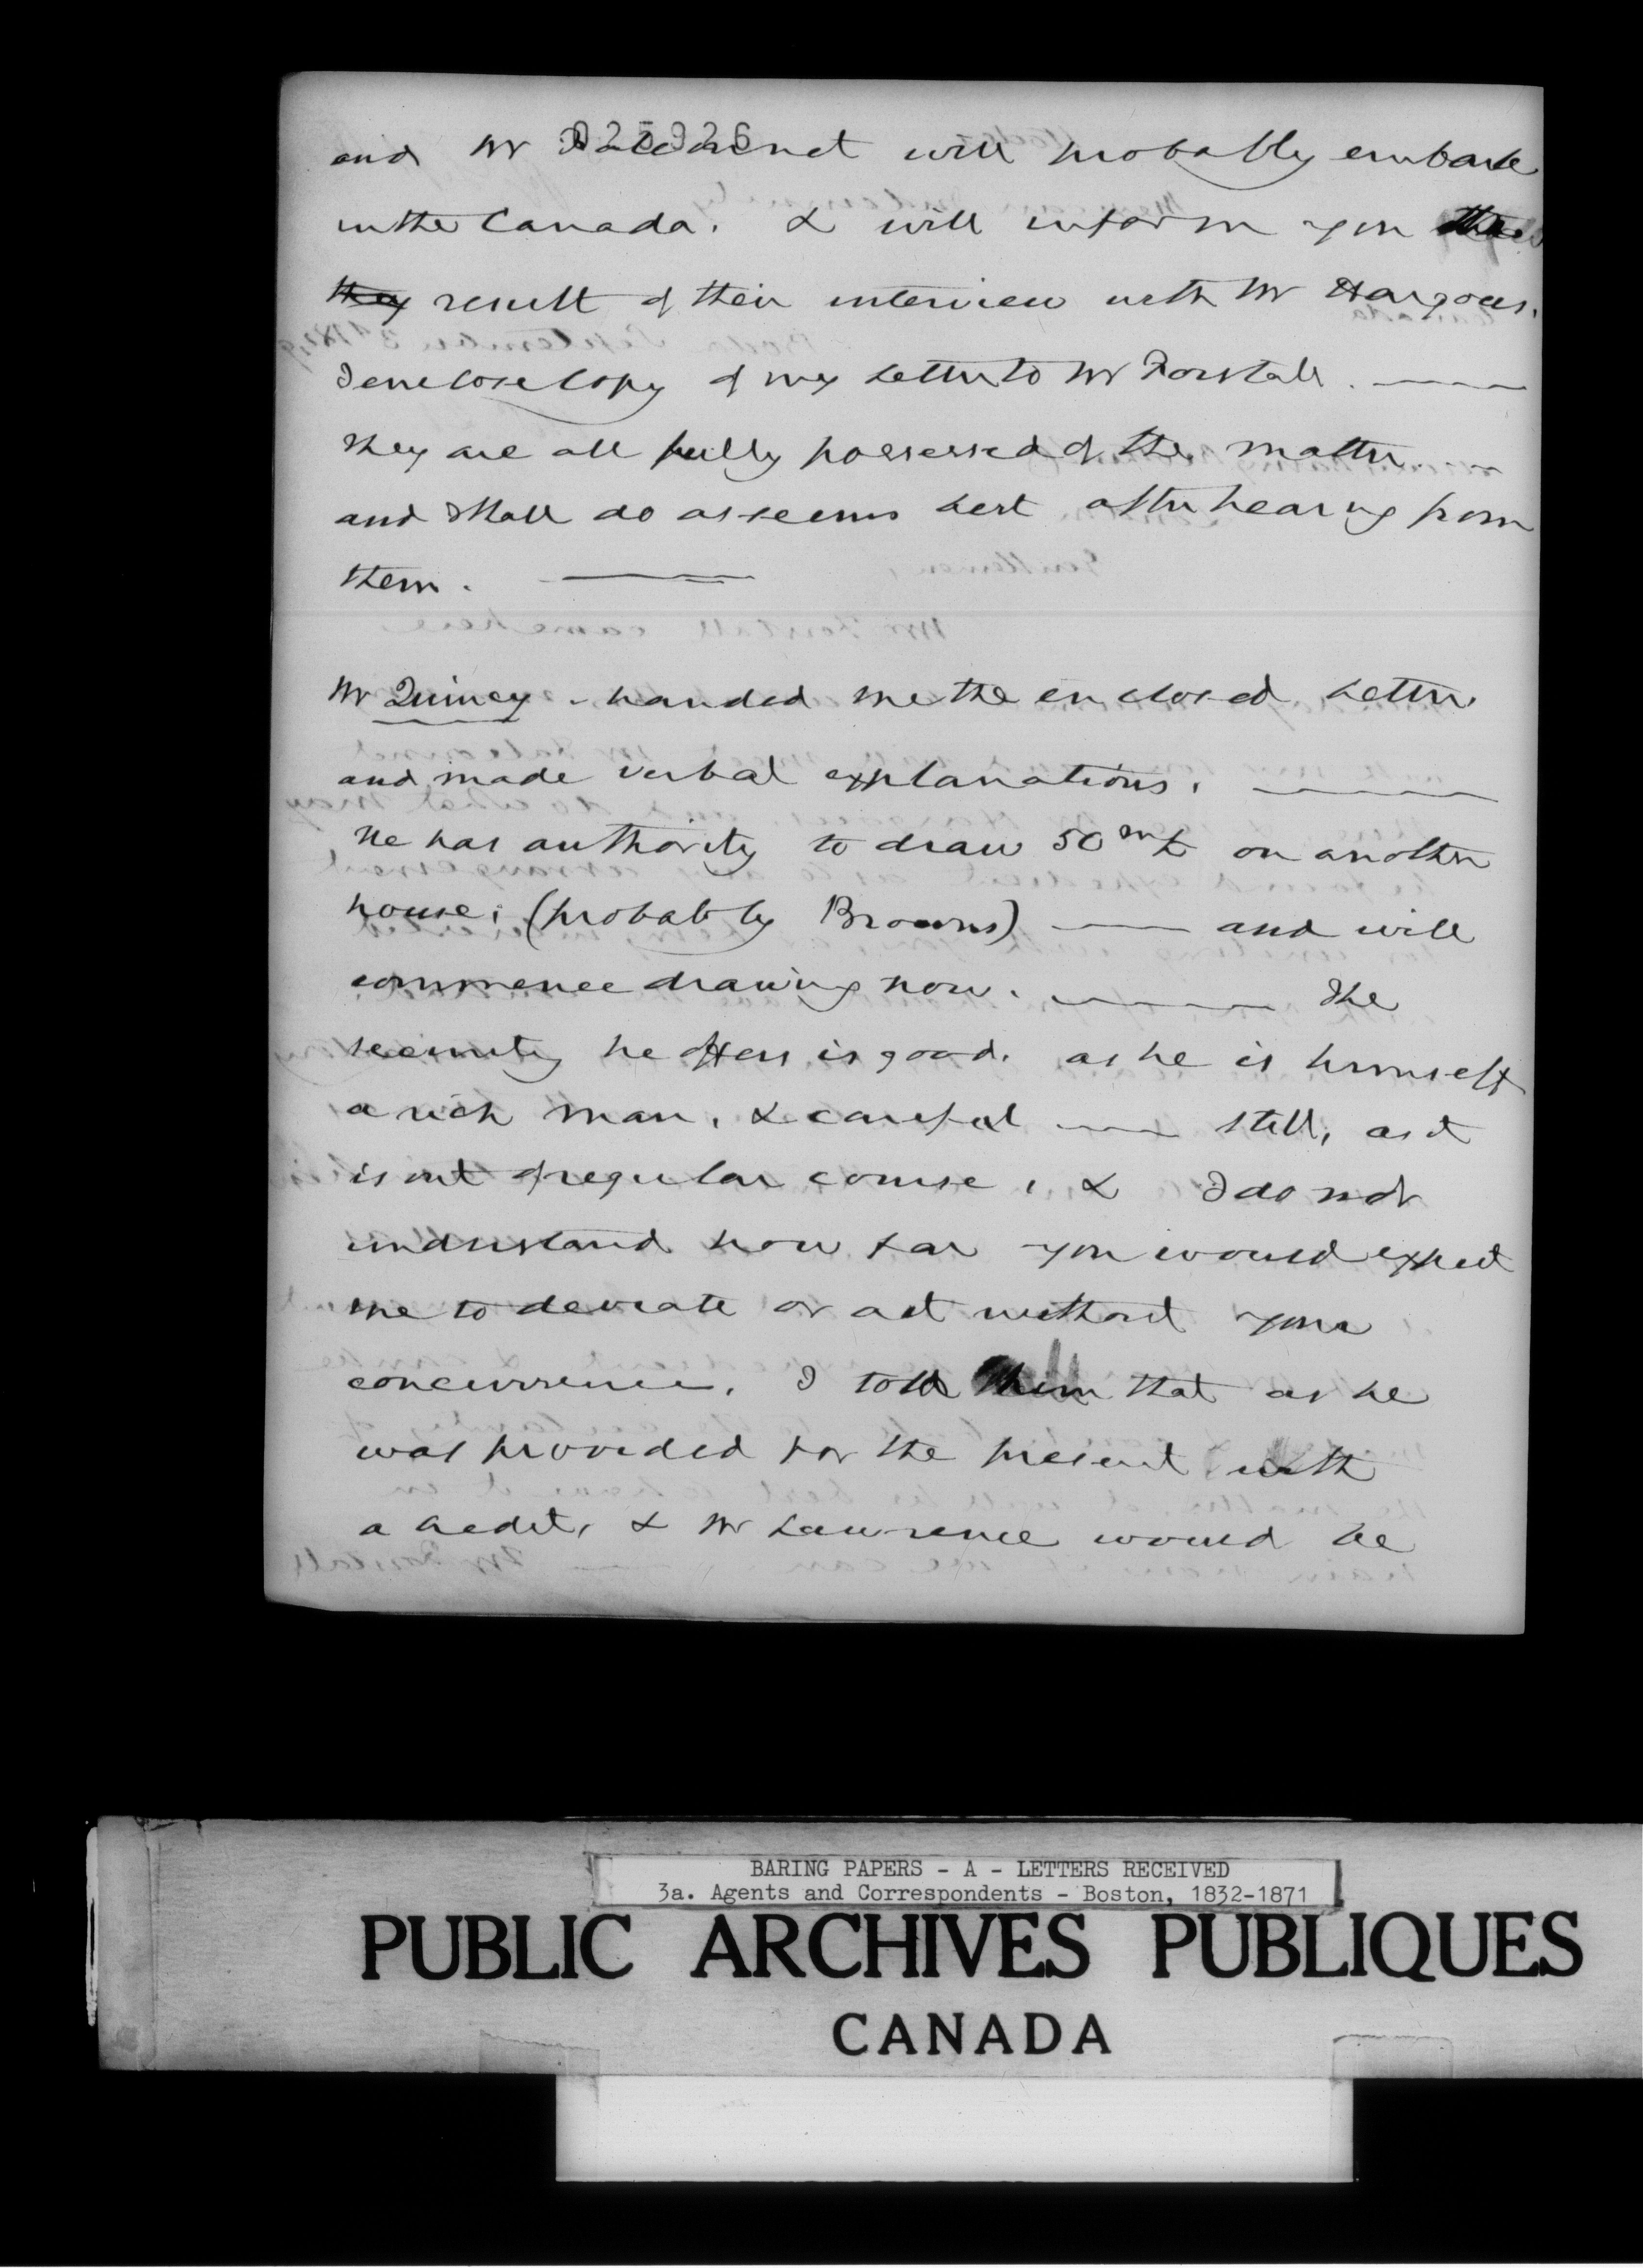 025926
and Mr Falconnet will probably embark
in the Canada. & will inform you the
they result of their interview with Mr Hargous.
I enclose Copy of my Letter to Mr Forstall. ———
They are all fully possessed of the matter
and shall do as seems best after hearing from
them. ———
Mr Quincy - handed me the enclosed Letter.
and made verbal explanations. ———
He has authority to draw 50 m £ on another
house; (probably Browns) —— and will
commence drawing now. ——— The
security he offers is good. as he is himself
a rich man, & careful —— still, as it
is out of regular course, & I do not
understand how far you would expect
me to deviate or act without your
concurrence. I told him that as he
was provided for the present with
a Credit, & Mr Lawrence would be
BARING PAPERS - A - LETTERS RECEIVED
3a. Agents and Correspondents - Boston, 1832-1871
PUBLIC ARCHIVES PUBLIQUES
CANADA